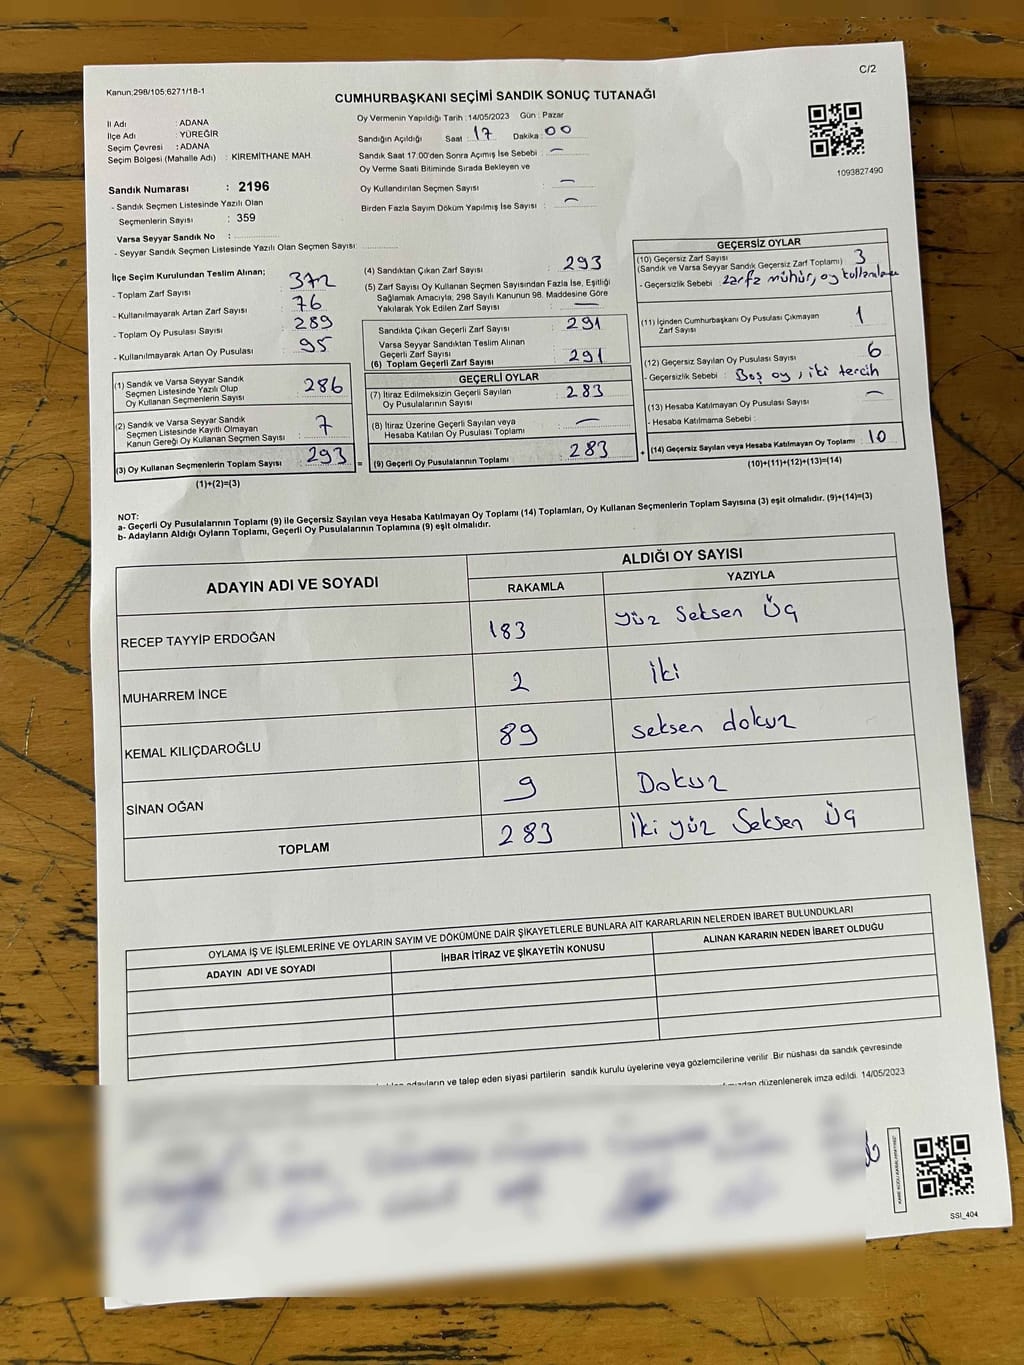 C/2
Kanun;298/105;6271/18-1
CUMHURBAŞKANI SEÇİMİ SANDIK SONUÇ TUTANAĞI
İl Adı : ADANA
İlçe Adı : YÜREĞİR
Seçim Çevresi : ADANA
Seçim Bölgesi (Mahalle Adı) : KİREMİTHANE MAH
Sandık Numarası : 2196
- Sandık Seçmen Listesinde Yazılı Olan
Seçmenlerin Sayısı : 359
Varsa Seyyar Sandık No :
- Seyyar Sandık Seçmen Listesinde Yazılı Olan Seçmen Sayısı:
Oy Vermenin Yapıldığı Tarih : 14/05/2023 Gün : Pazar
Sandığın Açıldığı Saat : 17 Dakika : 00
Sandık Saat 17:00'den Sonra Açımış İse Sebebi : —
Oy Verme Saati Bitiminde Sırada Bekleyen ve
Oy Kullandırılan Seçmen Sayısı : —
Birden Fazla Sayım Döküm Yapılmış İse Sayısı : —
1093827490
İlçe Seçim Kurulundan Teslim Alınan;
- Toplam Zarf Sayısı : 372
- Kullanılmayarak Artan Zarf Sayısı : 76
- Toplam Oy Pusulası Sayısı : 289
- Kullanılmayarak Artan Oy Pusulası : 95
(1) Sandık ve Varsa Seyyar Sandık
Seçmen Listesinde Yazılı Olup
Oy Kullanan Seçmenlerin Sayısı : 286
(2) Sandık ve Varsa Seyyar Sandık
Seçmen Listesinde Kayıtlı Olmayan
Kanun Gereği Oy Kullanan Seçmen Sayısı : 7
(3) Oy Kullanan Seçmenlerin Toplam Sayısı : 293 =
(1)+(2)=(3)
(4) Sandıktan Çıkan Zarf Sayısı : 293
(5) Zarf Sayısı Oy Kullanan Seçmen Sayısından Fazla İse, Eşitliği
Sağlamak Amacıyla, 298 Sayılı Kanunun 98. Maddesine Göre
Yakılarak Yok Edilen Zarf Sayısı : —
Sandıkta Çıkan Geçerli Zarf Sayısı : 291
Varsa Seyyar Sandıktan Teslim Alınan
Geçerli Zarf Sayısı :
(6) Toplam Geçerli Zarf Sayısı : 291
GEÇERLİ OYLAR
(7) İtiraz Edilmeksizin Geçerli Sayılan
Oy Pusulalarının Sayısı : 283
(8) İtiraz Üzerine Geçerli Sayılan veya
Hesaba Katılan Oy Pusulası Toplamı : —
(9) Geçerli Oy Pusulalarının Toplamı : 283 +
GEÇERSİZ OYLAR
(10) Geçersiz Zarf Sayısı : 3
(Sandık ve Varsa Seyyar Sandık Geçersiz Zarf Toplamı)
- Geçersizlik Sebebi : zarfa mühür, oy
(11) İçinden Cumhurbaşkanı Oy Pusulası Çıkmayan
Zarf Sayısı : 1
(12) Geçersiz Sayılan Oy Pusulası Sayısı : 6
- Geçersizlik Sebebi : Boş oy, iki tercih
(13) Hesaba Katılmayan Oy Pusulası Sayısı : —
- Hesaba Katılmama Sebebi :
(14) Geçersiz Sayılan veya Hesaba Katılmayan Oy Toplamı : 10
(10)+(11)+(12)+(13)=(14)
NOT:
a- Geçerli Oy Pusulalarının Toplamı (9) ile Geçersiz Sayılan veya Hesaba Katılmayan Oy Toplamı (14) Toplamları, Oy Kullanan Seçmenlerin Toplam Sayısına (3) eşit olmalıdır. (9)+(14)=(3)
b- Adayların Aldığı Oyların Toplamı, Geçerli Oy Pusulalarının Toplamına (9) eşit olmalıdır.
ADAYIN ADI VE SOYADI ALDIĞI OY SAYISI
RAKAMLA YAZIYLA
RECEP TAYYİP ERDOĞAN 183 yüz Seksen Üç
MUHARREM İNCE 2 iki
KEMAL KILIÇDAROĞLU 89 seksen dokuz
SİNAN OĞAN 9 Dokuz
TOPLAM 283 İki yüz Seksen Üç
OYLAMA İŞ VE İŞLEMLERİNE VE OYLARIN SAYIM VE DÖKÜMÜNE DAİR ŞİKAYETLERLE BUNLARA AİT KARARLARIN NELERDEN İBARET BULUNDUKLARI
ADAYIN ADI VE SOYADI İHBAR İTİRAZ VE ŞİKAYETİN KONUSU ALINAN KARARIN NEDEN İBARET OLDUĞU
adayların ve talep eden siyasi partilerin sandık kurulu üyelerine veya gözlemcilerine verilir. Bir nüshası da sandık çevresinde
düzenlenerek imza edildi. 14/05/2023
SSI_404